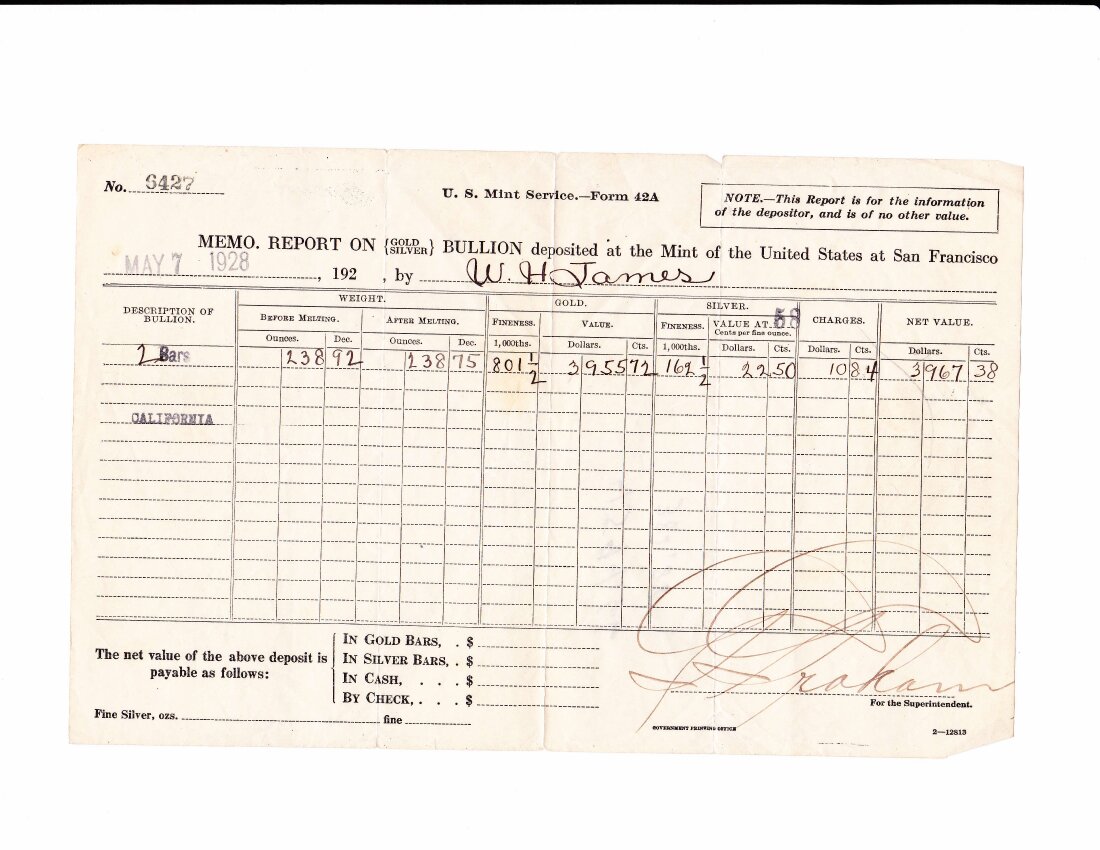 No. 6427
U. S. Mint Service.—Form 42A
NOTE.—This Report is for the information
of the depositor, and is of no other value.
MEMO. REPORT ON {GOLD SILVER} BULLION deposited at the Mint of the United States at San Francisco
MAY 7 1928, 192 , by W. H. James
DESCRIPTION OF BULLION. WEIGHT. GOLD. SILVER. CHARGES. NET VALUE.
BEFORE MELTING. AFTER MELTING. FINENESS. VALUE. FINENESS. VALUE AT 58 Cents per fine ounce.
Ounces. Dec. Ounces. Dec. 1,000ths. Dollars. Cts. 1,000ths. Dollars. Cts. Dollars. Cts. Dollars. Cts.
2 Bars 238 92 238 75 801 1/2 3955 72 162 1/2 22 50 10 84 3967 38
CALIFORNIA
The net value of the above deposit is
payable as follows:
IN GOLD BARS, . $
IN SILVER BARS, . $
IN CASH, . . . $
BY CHECK, . . . $
For the Superintendent.
Fine Silver, ozs. fine
GOVERNMENT PRINTING OFFICE
2—12813